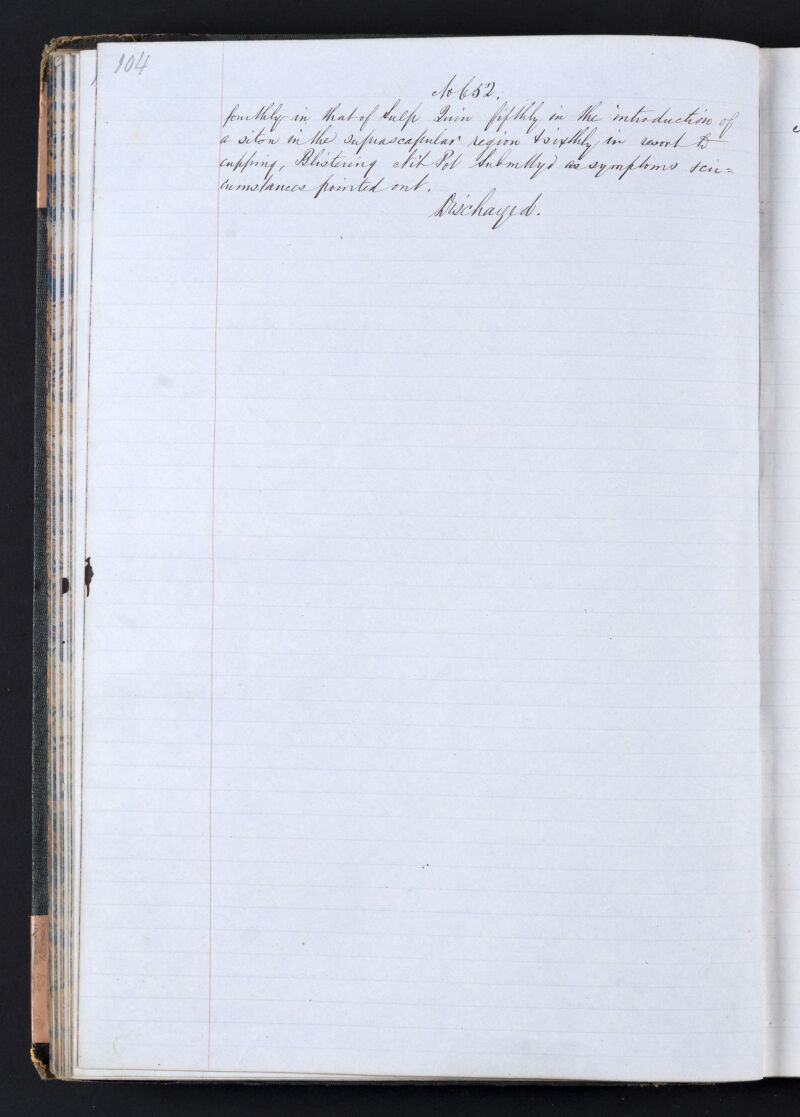 104
No 652.
fourthly in that of Sulp Quin fifthly in the introduction of
a siton in the suprascapular region & sixthly in resort to
cupping, Blistering Nit Pot & as symptoms & cir=
cumstances pointed out.
Discharged.